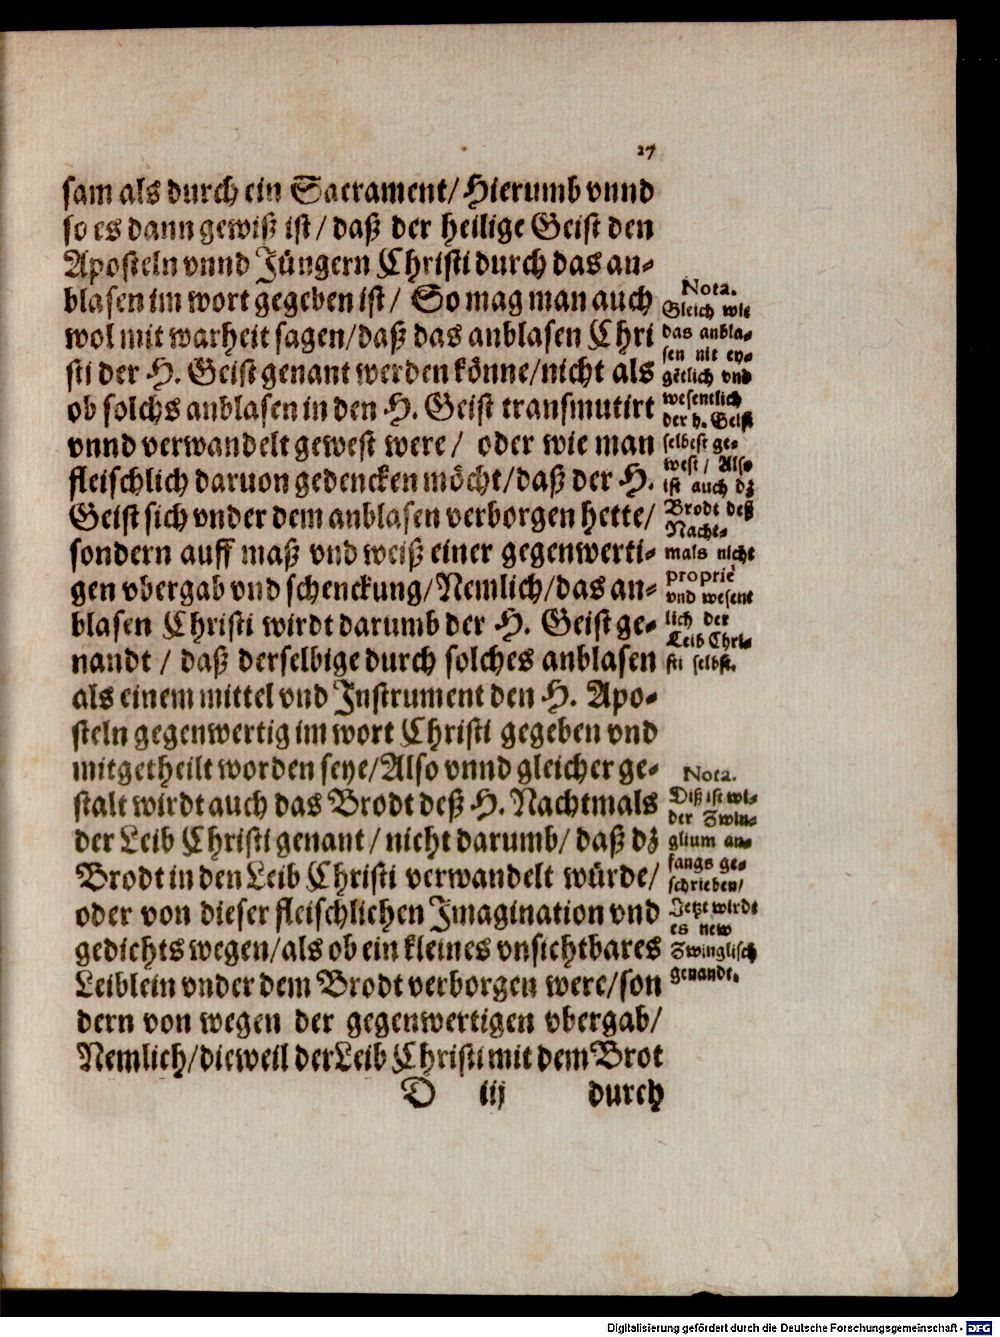 27
sam als durch ein Sacrament/ Hierumb vnnd
so es dann gewiß ist/ daß der heilige Geist den
Aposteln vnnd Jüngern Christi durch das an-
blasen im wort gegeben ist/ So mag man auch
wol mit warheit sagen/ daß das anblasen Chri
sti der H. Geist genant werden könne/ nicht als
ob solchs anblasen in den H. Geist transmutirt
vnnd verwandelt gewest were/ oder wie man
fleischlich daruon gedencken möcht/ daß der H.
Geist sich vnder dem anblasen verborgen hette/
sondern auff maß vnd weiß einer gegenwerti-
gen vbergab vnd schenckung/ Nemlich/ das an-
blasen Christi wirdt darumb der H. Geist ge-
nandt/ daß derselbige durch solches anblasen
als einem mittel vnd Instrument den H. Apo-
steln gegenwertig im wort Christi gegeben vnd
mitgetheilt worden seye/ Also vnnd gleicher ge-
stalt wirdt auch das Brodt deß H. Nachtmals
der Leib Christi genant/ nicht darumb/ daß dz
Brodt in den Leib Christi verwandelt würde/
oder von dieser fleischlichen Imagination vnd
gedichts wegen/ als ob ein kleines vnsichtbares
Leiblein vnder dem Brodt verborgen were/ son
dern von wegen der gegenwertigen vbergab/
Nemlich/ dieweil der Leib Christi mit dem Brot
D iij durch
Nota.
Gleich wie
das anbla-
sen nit ey-
gētlich vnd
wesentlich
der h. Geist
selbest ge-
west/ Also
ist auch dz
Brodt deß
Nacht-
mals nicht
propriè
vnd wesent
lich der
Leib Chri-
sti selbst.
Nota.
Diß ist wi-
der Zwin-
glium an-
fangs ge-
schrieben/
Jetzt wirdt
es new
Zwinglisch
genandt.
Digitalisierung gefördert durch die Deutsche Forschungsgemeinschaft - DFG